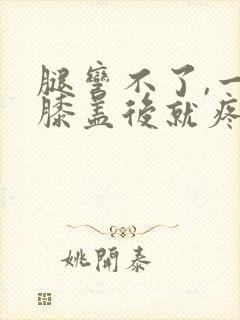 腿彎不了,一
膝蓋後就疼
姚開泰